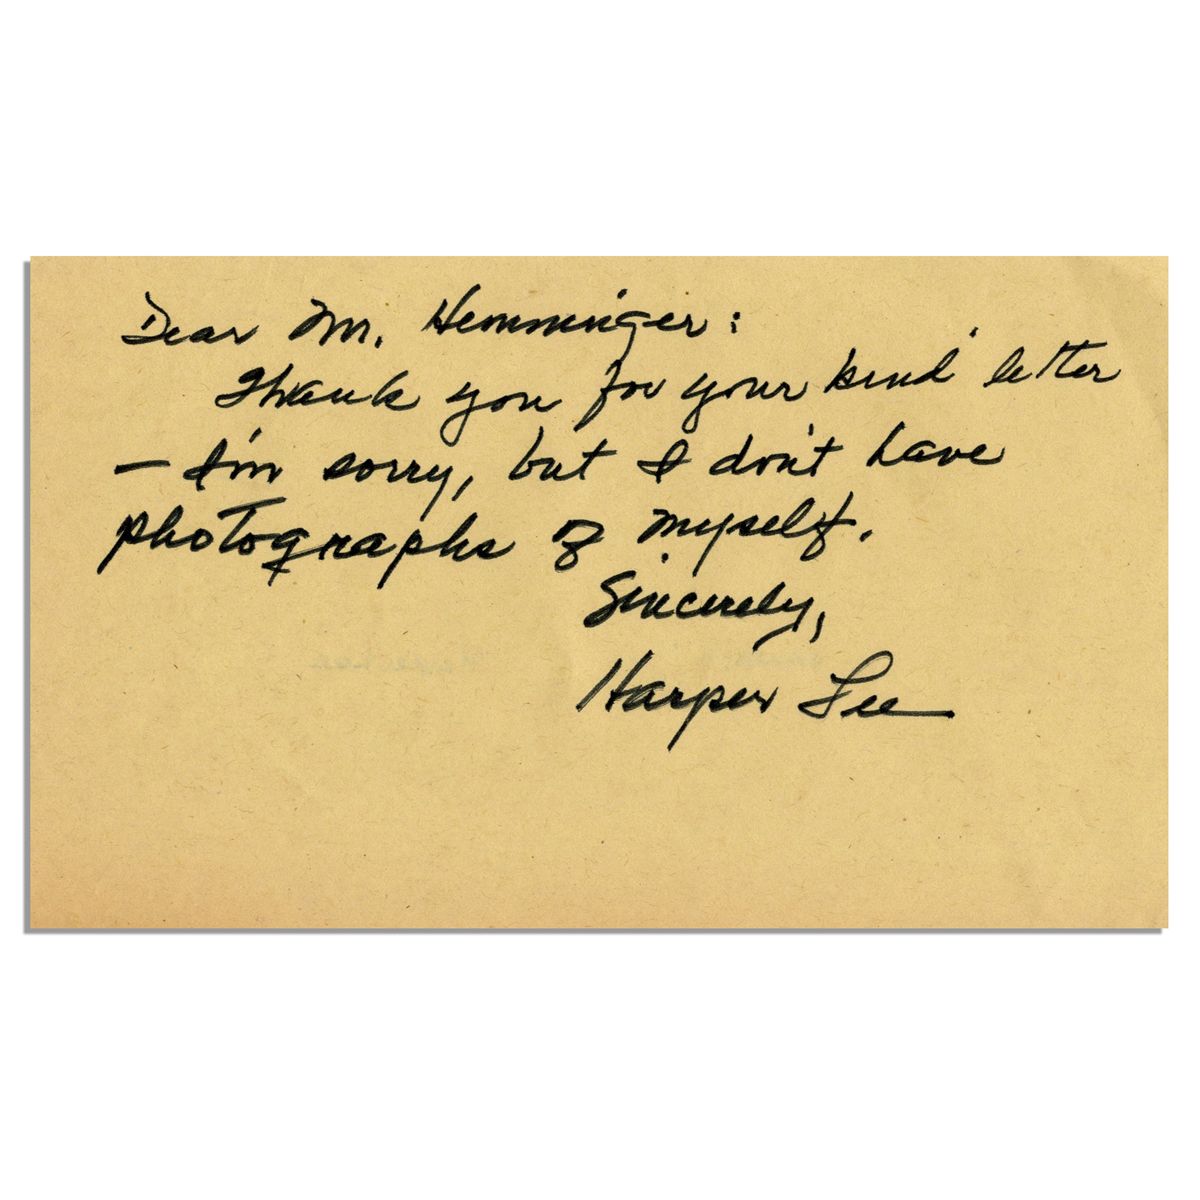 Dear Mr. Hemminger:
Thank you for your kind letter
— I'm sorry, but I don't have
photographs of myself.
Sincerely,
Harper Lee